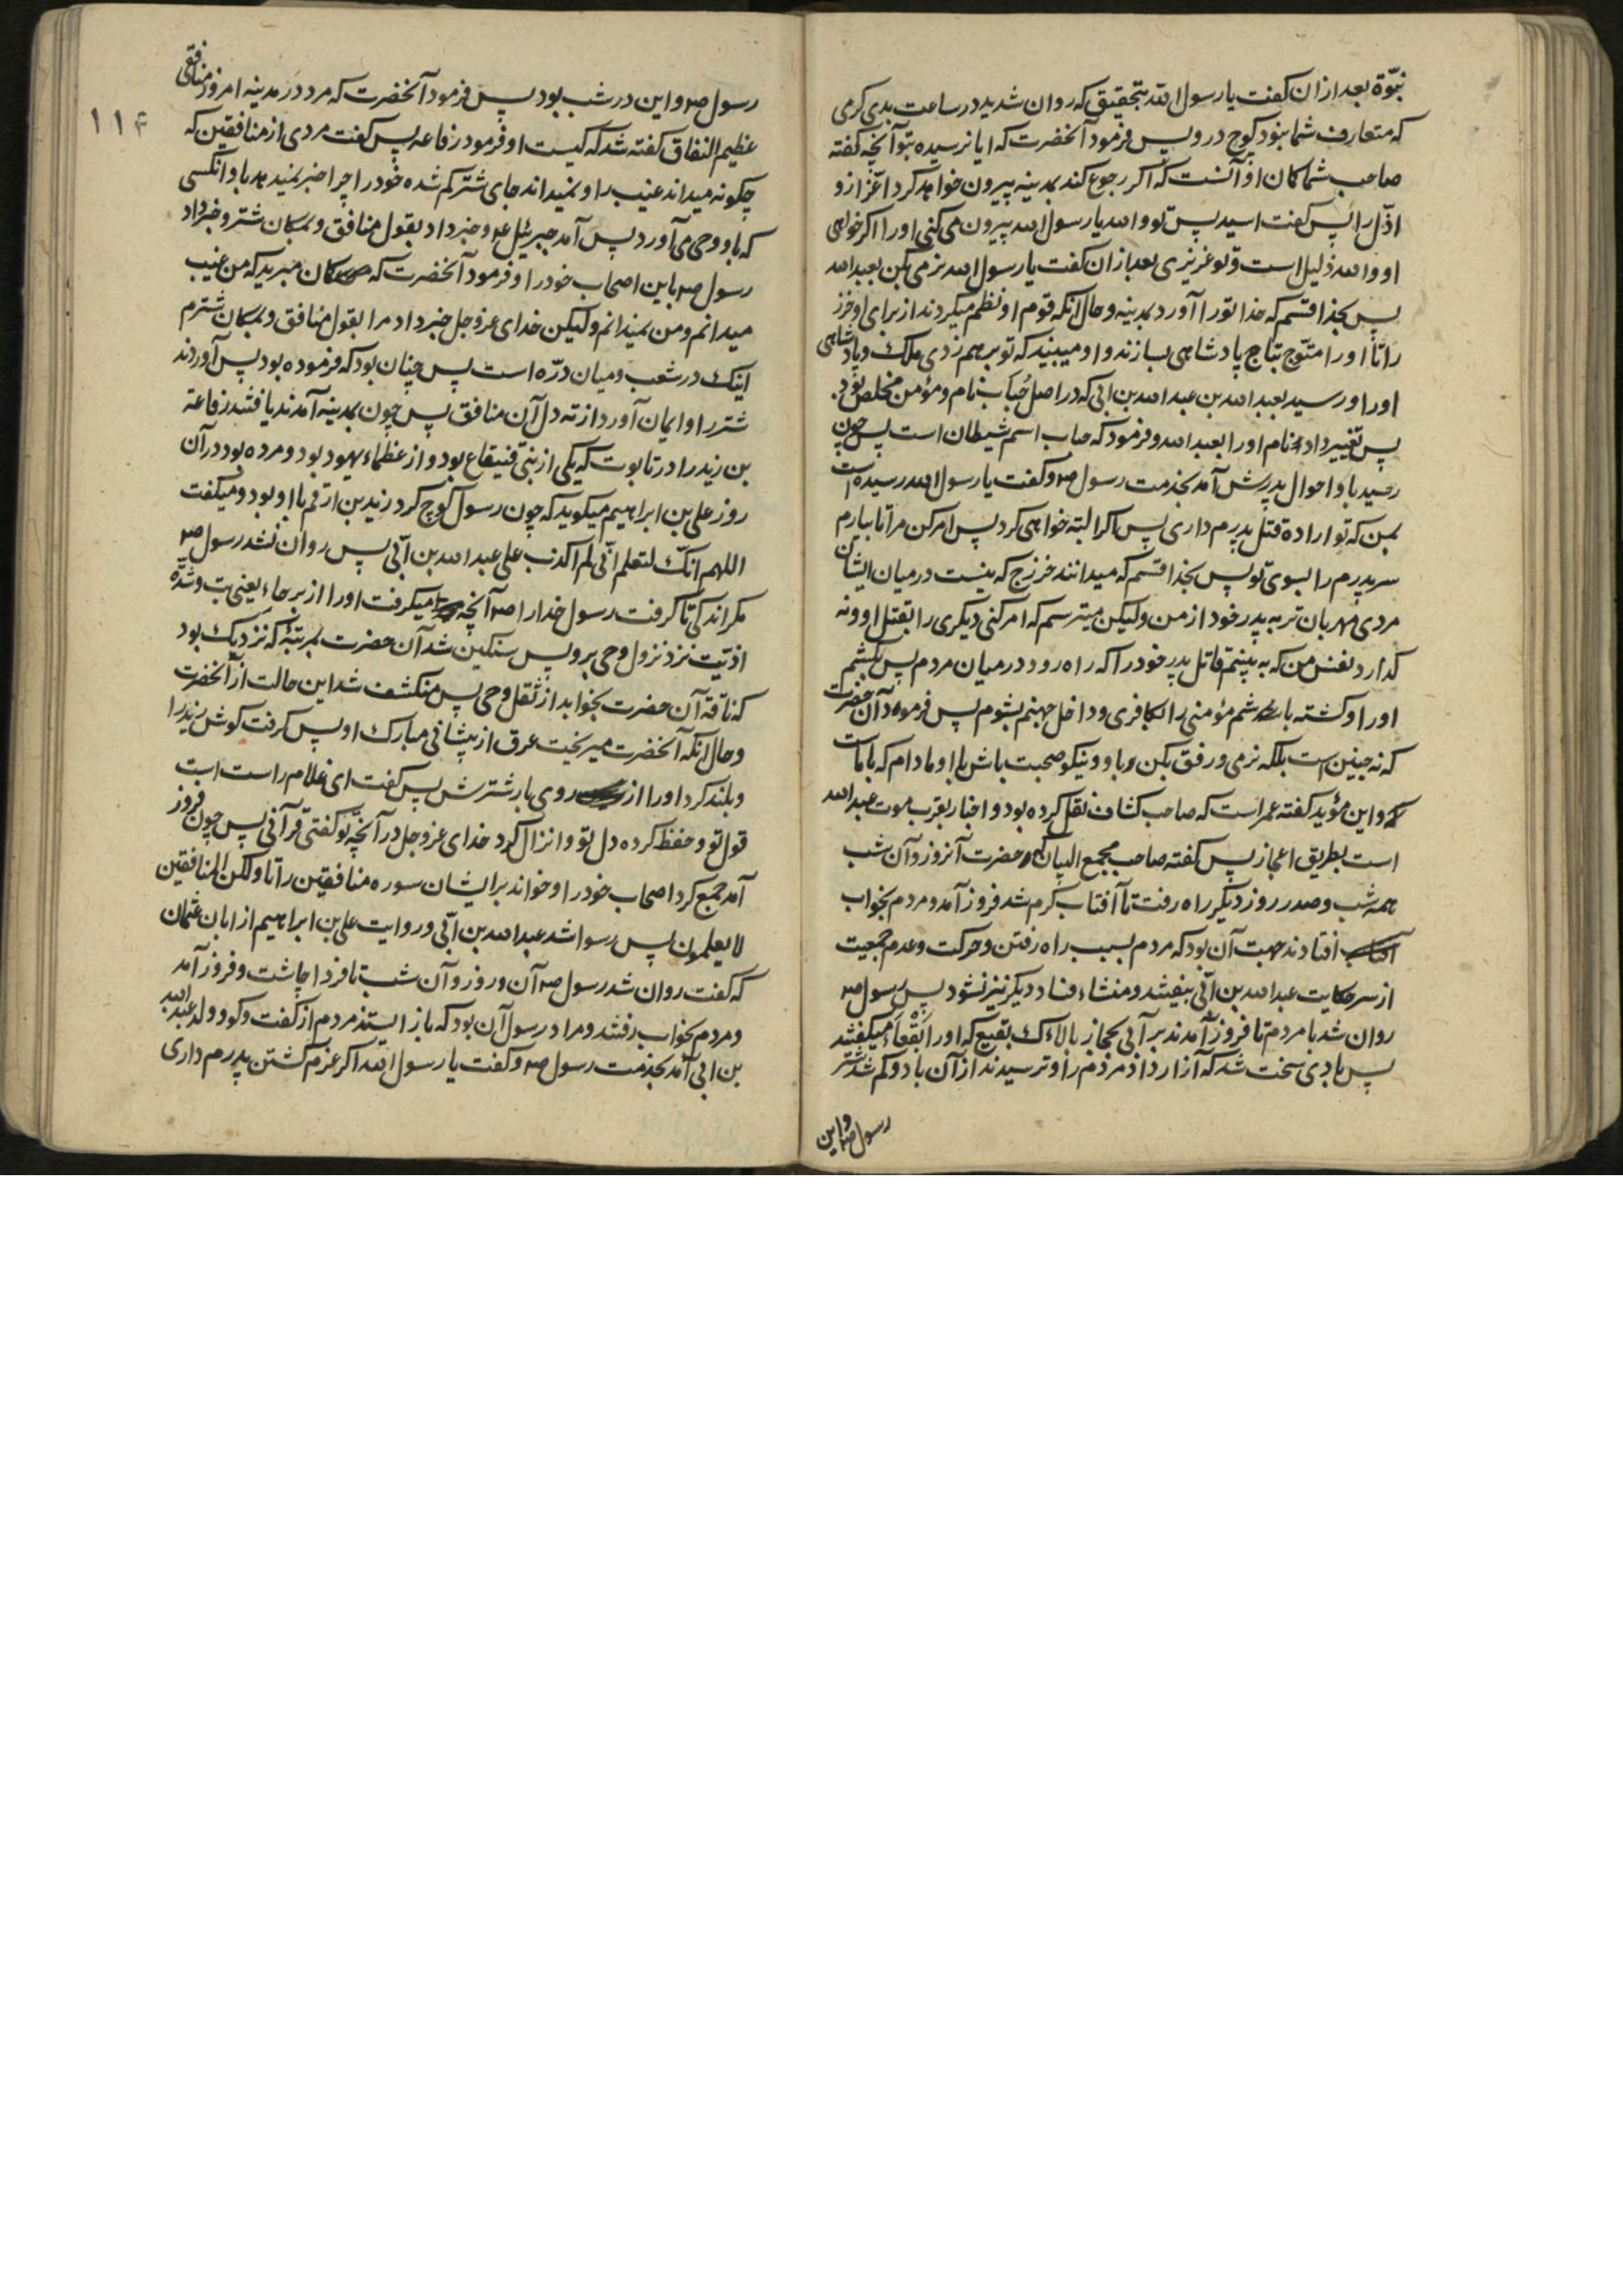 نبوّة بعد ازان كفت يا رسول الله بتحقيق كه روان شديد در ساعت بدى كرمى
كه متعارف شما نبود كوچ درو پس فرمود آنحضرت كه ايا نرسيده بتو آنچه كفته
صاحب شما كمان او آنست كه اكر رجوع كند بمدينه بيرون خواهد كرد اعزّ ازو
اذلّ را پس كفت اسيد پس تو والله يا رسول الله بيرون مى كنى او را اكر خواهى
او والله ذليل است و تو عزيزى بعد ازان كفت يا رسول الله نرمى بكن بعبد الله
پس بخدا قسم كه خدا تو را آورد بمدينه و حال آنكه قوم او نظم ميكردند از براى او خرز
را تا او را متوّج بتاج پادشاهى بسازند و او ميبيند كه تو برهم زدى ملك و پادشاهى
او را و رسيد بعبد الله بن عبد الله بن ابى كه در اصل حُباب نام و مؤمن مخلص بود
پس تغيير داد نام او را بعبد الله و فرمود كه حباب اسم شيطان است پس چون
رسيد باو احوال پدرش آمد بخدمت رسول ص و كفت يا رسول الله رسيده است
بمن كه تو اراده قتل پدرم دارى پس اكر البته خواهى كرد پس امر كن مرا تا بيارم
سر پدرم را بسوى تو پس بخدا قسم كه ميدانند خزرج كه نيست در ميان ايشان
مردى مهربان تر به پدر خود از من وليكن ميترسم كه امر كنى ديكرى را بقتل او و نه
كذارد نفس من كه به بينم قاتل پدر خود را كه راه رود در ميان مردم پس بكشم
او را و كشته باشم مؤمنى را بكافرى و داخل جهنم بشوم پس فرمود آن حضرت
كه نه چنين است بلكه نرمى و رفق بكن باو و نيكو صحبت باش با او مادام كه با ماست
و اين مؤيد كفته عمر است كه صاحب كشاف نقل كرده بود و اخبار بقرب موت عبد الله
است بطريق اعجاز پس كفته صاحب مجمع البيان كه حضرت آنروز و آن شب
همه شب و صدر روز ديكر راه رفت تا آفتاب كرم شد فروز آمد و مردم بخواب
افتادند جهت آن بود كه مردم بسبب راه رفتن و حركت و عدم جمعيت
از سر حكايت عبد الله بن ابّى بيفتند و منشاء فساد ديكر نيز نشود پس رسول ص
روان شد با مردم تا فروز آمدند بر آبى بحجاز بالاءك بقيع كه او را بَقْعاء ميكفتند
پس بادى سخت شد كه آزار داد مردم را و ترسيدند از آن باد و كم شد شتر
رسول ص و اين
١١۴
رسول ص و اين در شب بود پس فرمود آنحضرت كه مرد در مدينه امروز منافقى
عظيم النفاق كفته شد كه كيست او فرمود رفاعه پس كفت مردى از منافقين كه
چكونه ميداند غيب را و نميداند جاى شتر كم شده خود را چرا خبر نميدهد باو آنكسى
كه باو وحى مى آورد پس آمد جبرئيل ع و خبر داد بقول منافق و بمكان شتر و خبر داد
رسول ص باين اصحاب خود را و فرمود آنحضرت كه كمان مبريد كه من غيب
ميدانم و من نميدانم وليكن خداى عز و جل خبر داد مرا بقول منافق و بمكان شترم
اينك در شعب و ميان درّه است پس چنان بود كه فرموده بود پس آوردند
شتر را و ايمان آورد از ته دل آن منافق پس چون بمدينه آمدند يافتند رفاعة
بن زيد را در تابوت كه يكى از بنى قنيقاع بود و از عظماء يهود بود و مرده بود در آن
روز على بن ابراهيم ميكويد كه چون رسول كوچ كرد زيد بن ارقم با او بود و ميكفت
اللهم انّك لتعلم انّى لم اكذب على عبد الله بن ابّى پس روان نشد رسول ص
مكر اندكى تا كرفت رسول خدا را ص آنچه ميكرفت او را از برحاء يعنى تب و شدّه
اذيّت نزد نزول وحى برو پس سنكين شد آن حضرت بمرتبهٔ كه نزديك بود
كه ناقه آن حضرت بخوابد از ثقل وحى پس منكشف شد اين حالت از آنحضرت
و حال آنكه آنحضرت ميريخت عرق از پيشانى مبارك او پس كرفت كوش زيد را
و بلند كرد او را از روى بار شترش پس كفت اى غلام راست است
قول تو و حفظ كرده دل تو و انزال كرد خداى عز و جل در آنچه تو كفتى قرآنى پس چون فروز
آمد جمع كرد اصحاب خود را و خواند بر ايشان سوره منافقين را تا ولكن المنافقين
لا يعلمون پس رسوا شد عبد الله بن ابّى و روايت على بن ابراهيم از ابان عثمان
كه كفت روان شد رسول ص آن روز و آن شب تا فردا چاشت و فروز آمد
و مردم بخواب رفتند و مراد رسول آن بود كه باز ايستند مردم از كفت و كو و ولد عبد الله
بن ابى آمد بخدمت رسول ص و كفت يا رسول الله اكر عزم كشتن پدرم دارى